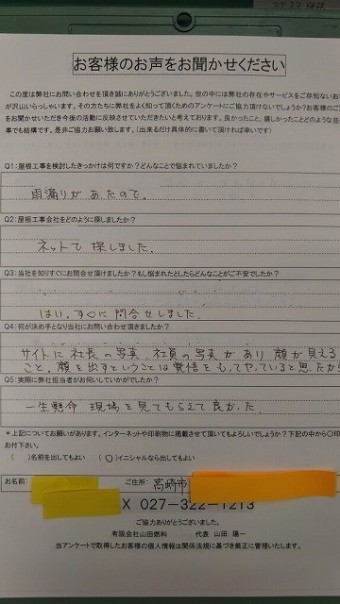 お客様のお声をお聞かせください
この度は弊社にお問い合わせを頂き誠にありがとうございました。世の中には弊社の存在やサービスをご存知ないお
が沢山いらっしゃいます。その方たちに弊社をよく知って頂くためのアンケートにご協力頂けないでしょうか?お客様のご
をお聞かせいただき今後の活動に反映させていただきたいと考えております。良かったこと、嬉しかったことどのような些
事でも結構です。是非ご協力お願い致します。(出来るだけ具体的に書いて頂ければ幸いです)
Q1:屋根工事を検討したきっかけは何ですか?どんなことで悩まれていましたか?
雨漏りがあたので。
Q2:屋根工事会社をどのように探しましたか?
ネットで探しました。
Q3:当社を知りすぐにお問合せ頂けましたか?もし悩まれたとしたらどんなことがご不安でしたか?
はい、すぐに問合せしました。
Q4:何が決め手となり当社にお問い合わせ頂きましたか?
サイトに社長の写真、社員の写真があり、顔が見える
こと。顔を出すということは責任をもってやっていると思たから
Q5:実際に弊社担当者がお伺いしていかがでしたか?
一生懸命 現場を見てもらえて良かた。
*上記についてお願いがあります。インターネットや印刷物に掲載させて頂いてもよろしいでしょうか?下記の中から〇印
お付下さい。
( )名前を出してもよい (〇)イニシャルなら出してもよい
お名前 ご住所: 高崎市
X 027-322-1213
ご協力ありがとうございました。
有限会社山田燃料 代表 山田 陽一
当アンケートで取得したお客様の個人情報は関係法規に基づき厳正に管理いたします。